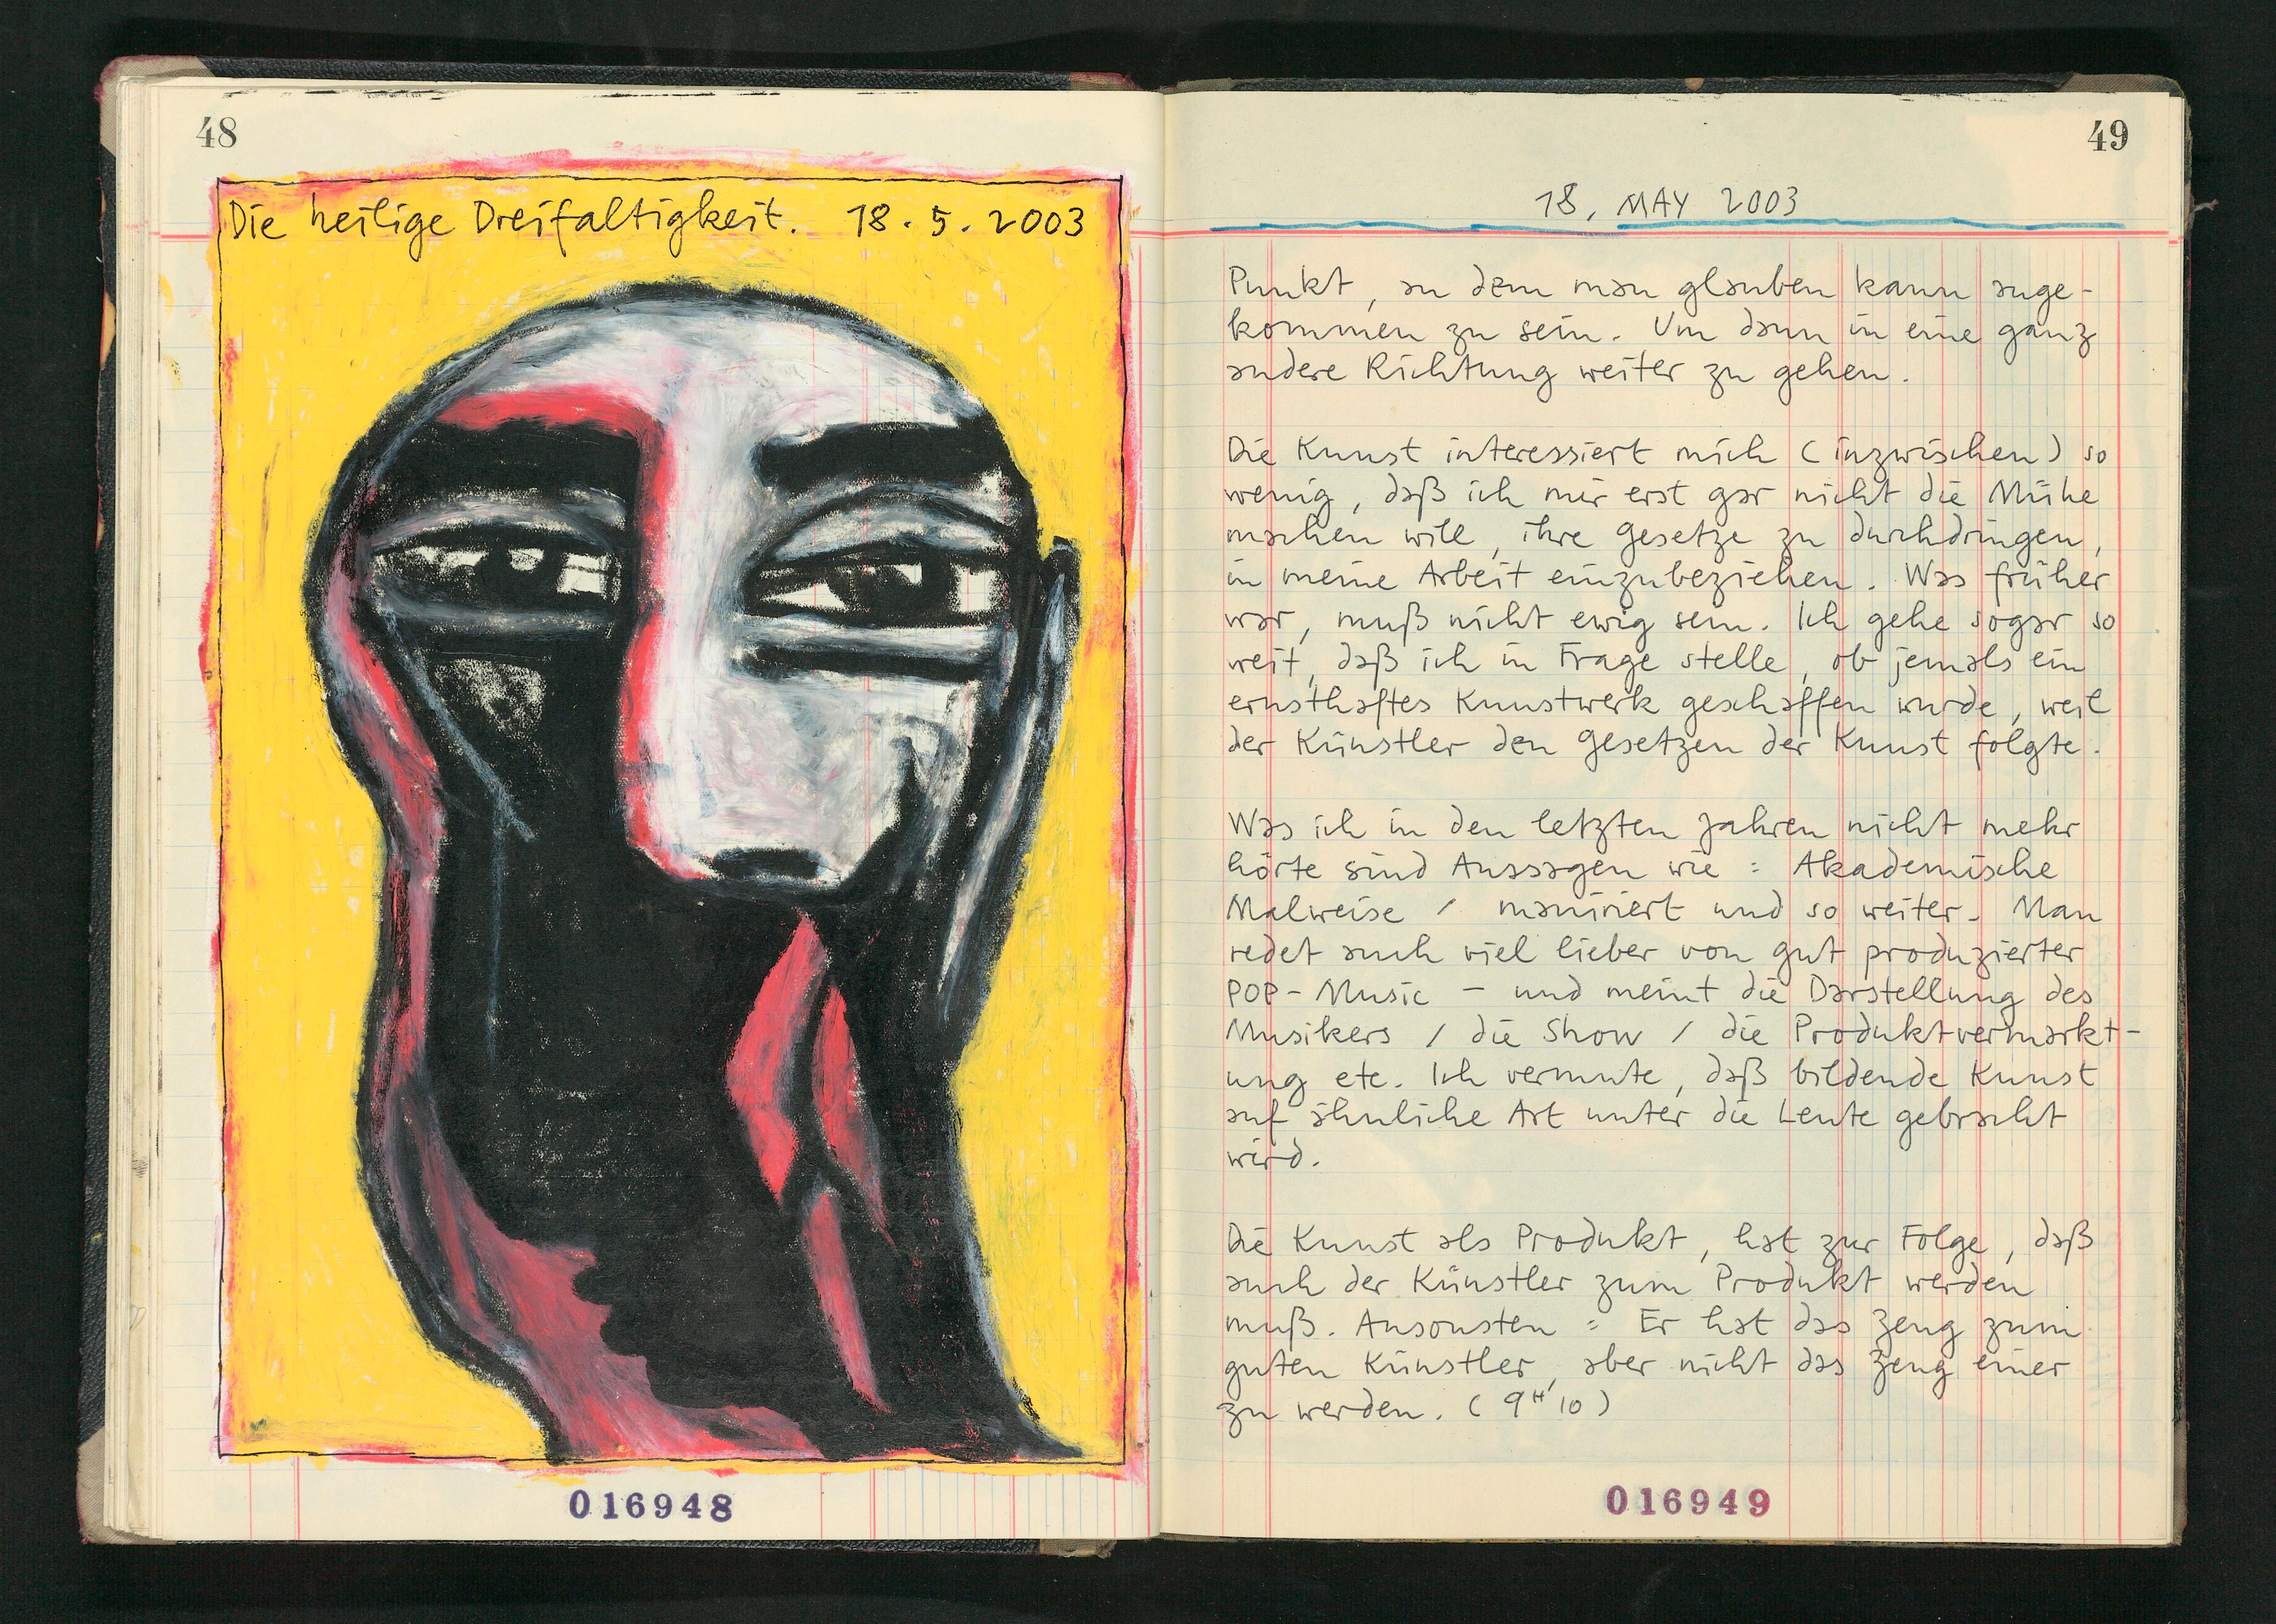 48
Die heilige Dreifaltigkeit. 18.5.2003
016948
49
18. MAY 2003
Punkt, an dem man glauben kann ange-
kommen zu sein. Um dann in eine ganz
andere Richtung weiter zu gehen.
Die Kunst interessiert mich (inzwischen) so
wenig, daß ich mir erst gar nicht die Mühe
machen will, ihre Gesetze zu durchdringen,
in meine Arbeit einzubeziehen. Was früher
war, muß nicht ewig sein. Ich gehe sogar so
weit, daß ich in Frage stelle, ob jemals ein
ernsthaftes Kunstwerk geschaffen wurde, weil
der Künstler den Gesetzen der Kunst folgte.
Was ich in den letzten Jahren nicht mehr
hörte sind Aussagen wie : Akademische
Malweise / maniriert und so weiter. Man
redet auch viel lieber von gut produzierter
POP-Music - und meint die Darstellung des
Musikers / die Show / die Produktvermarkt-
ung etc. Ich vermute, daß bildende Kunst
auf ähnliche Art unter die Leute gebracht
wird.
Die Kunst als Produkt, hat zur Folge, daß
auch der Künstler zum Produkt werden
muß. Ansonsten : Er hat das Zeug zum
guten Künstler, aber nicht das Zeug einer
zu werden. (9H'10)
016949